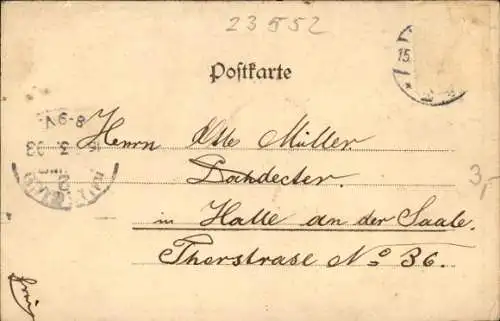 23552
Postkarte
15.
8-9V.
Herrn Otto Müller.
Dachdecker.
in Halle an der Saale.
Thorstrase No 36.
3,-